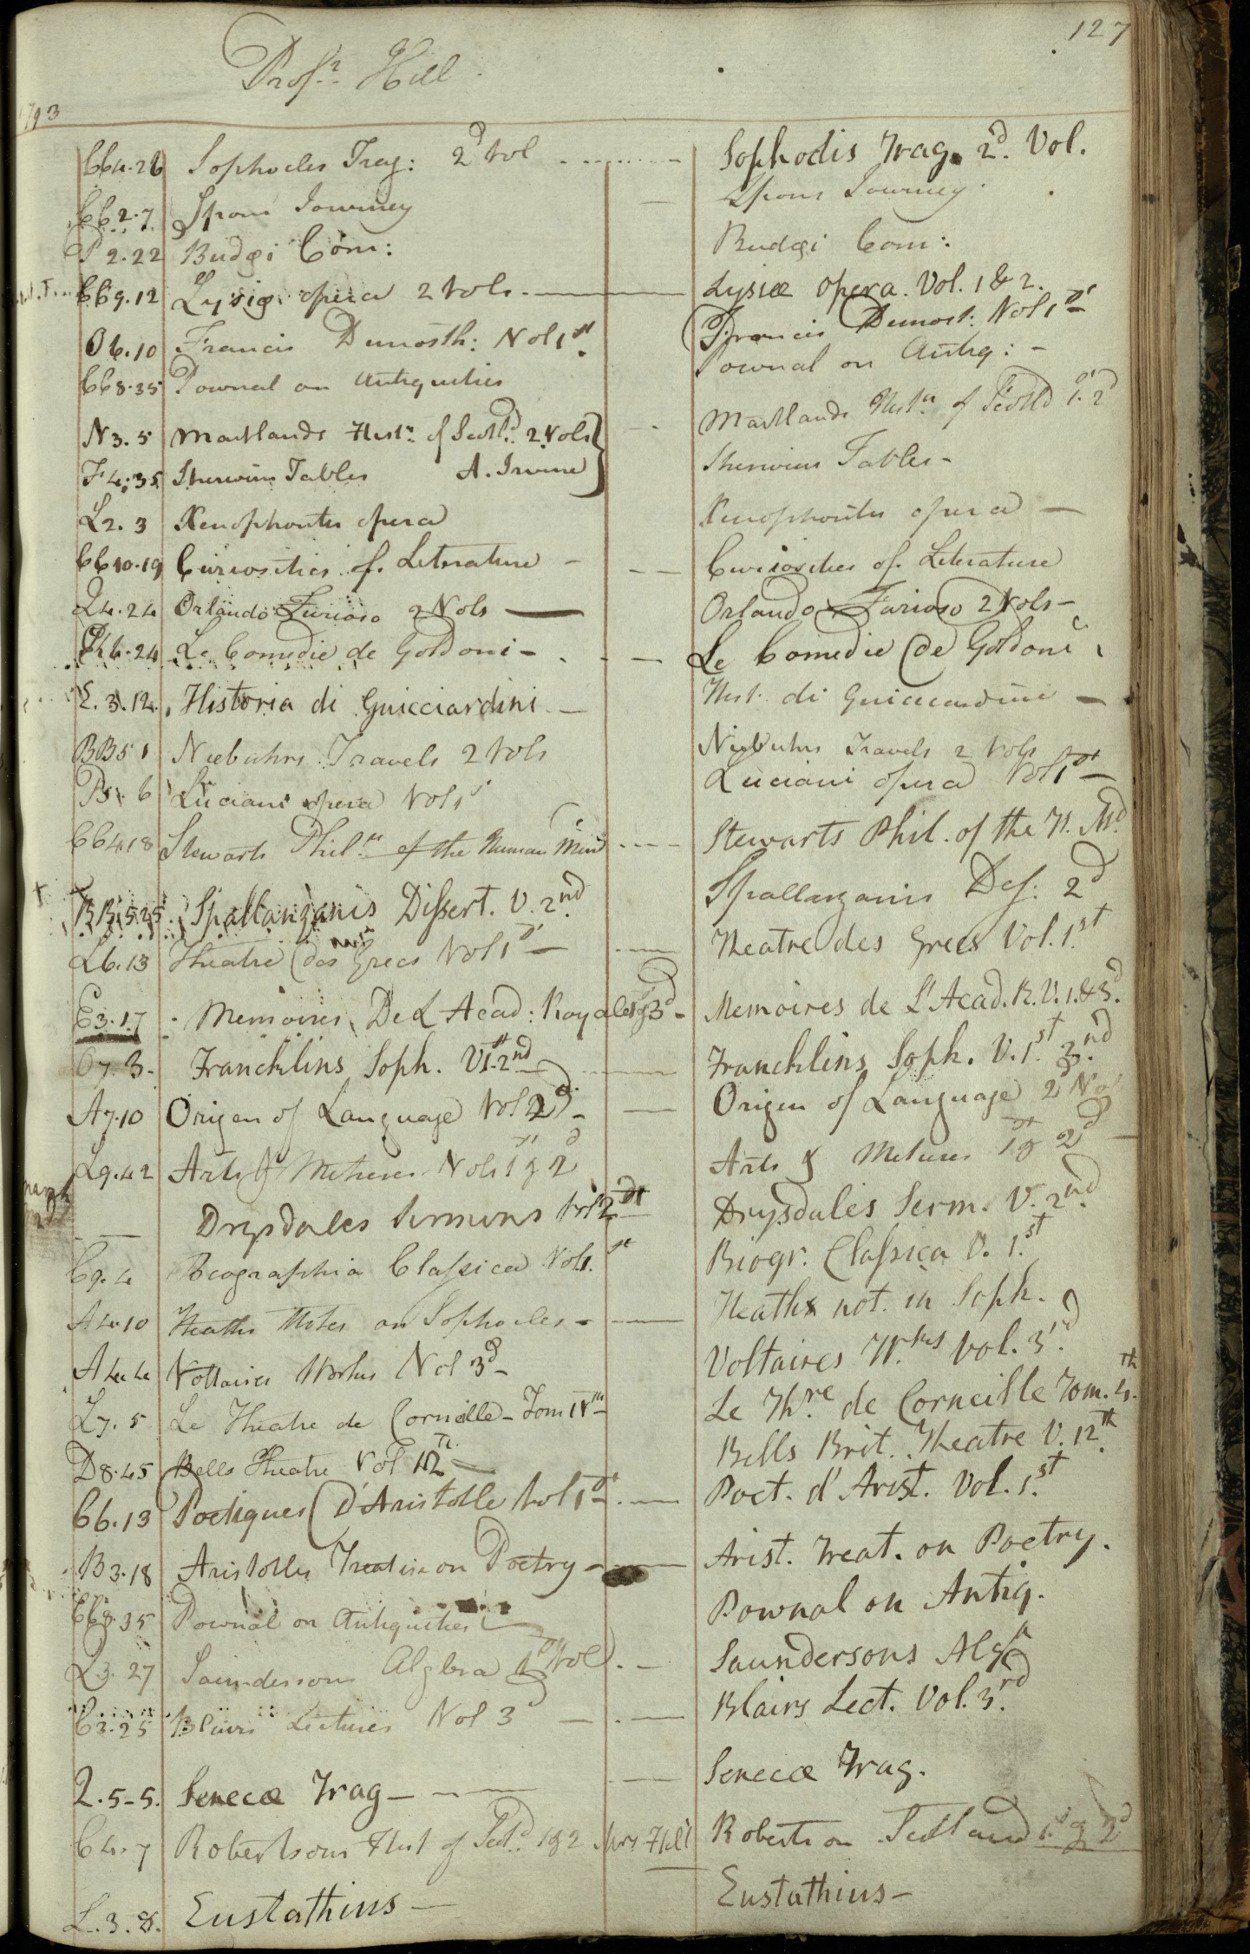 127
Profr Hill
1793
CC4.26 Sophocles Trag: 2d Vol Sophoclis Trag. 2d. Vol.
CC2.7 Spons Journey Spons Journey
P2.22 Budæi Com: Budæi Com:
CC9.12 Lysiæ opera 2 Vols. Lysiæ opera. Vol. 1 & 2.
O6.10 Francis Demosth: Vol 1st Francis Demost: Vol 1st
CC8.35 Pownal on Antiquities Pownal on Antiq:
N3.5 Maitlands Histy of Scotld. 2 Vols Maitlands Histy of Scotld 1. 2d
F4.35 Sherwins Tables A. Irvine Sherwins Tables
L2.3 Xenophontis opera Xenophontis opera
CC10.19 Curiosities of Literature Curiosities of Literature
Q4.24 Orlando Furioso 2 Vols Orlando Furioso 2 Vols
K6.24 Le Comedie de Goldoni Le Comedie de Goldoni
E.3.12. Historia di Guicciardini Hist. di Guicciardini
BB5 1 Niebuhrs Travels 2 Vols Niebuhrs Travels 2 Vols
6 Luciani opera Vol 1st Luciani opera Vol 1st
CC4.18 Stewarts Phily of the Human Mind Stewarts Phil. of the H. Md.
BB.5.25 Spallanzanis Dissert. V. 2nd. Spallanzanis Des. 2d
L6.13 Theatre des Grecs Vol 1st Theatre des Grecs Vol. 1.st
E3.17 Memoires De L Acad: Royale 1 & 3d Memoires de L'Acad. R. V. 1. & 3.d
C7.3. Francklins Soph. V 1st 2nd Francklins Soph. V. 1.st 2.nd
A7.10 Origen of Language Vol 2d. Origen of Language 2d Vol
L9.42 Arts & Metieres Vols 1st & 2d Arts & Metieres 1st & 2d
Drysdales Sermons Vol 2d Drysdales Serm. V. 2nd.
C9.4 Beographia Classica Vol 1.st Biogr. Classica V. 1.st
A4.10 Heaths Notes on Sophocles Heaths not. in Soph.
A4.4 Voltaires Works Vol 3d Voltaires Wrks vol. 3.d
L7.5 Le Theatre de Corneille Tom IVm Le Thre de Corneille Tom. 4.th
D8.45 Bells Theatre Vol 12th Bells Brit. Theatre V. 12.th
C6.13 Poetiques D'Aristotle Vol 1st Poet. d'Arist. Vol. 1.st
B3.18 Aristotles Treatise on Poetry Arist. Treat. on Poetry.
CC8.35 Pownal on Antiquities Pownal on Antiq.
Q3.27 Saundersons Algebra 1st Vol. Saundersons Alga
C3.25 Blairs Lectures Vol 3 Blairs Lect. Vol. 3.rd
Q.5-5. Senecæ Trag Senecæ Trag.
C4.7 Robertsons Hist of Scotd. 1 & 2 Mrs Hill Robertson Scotland 1st & 2d
L.3.8. Eustathius Eustathius